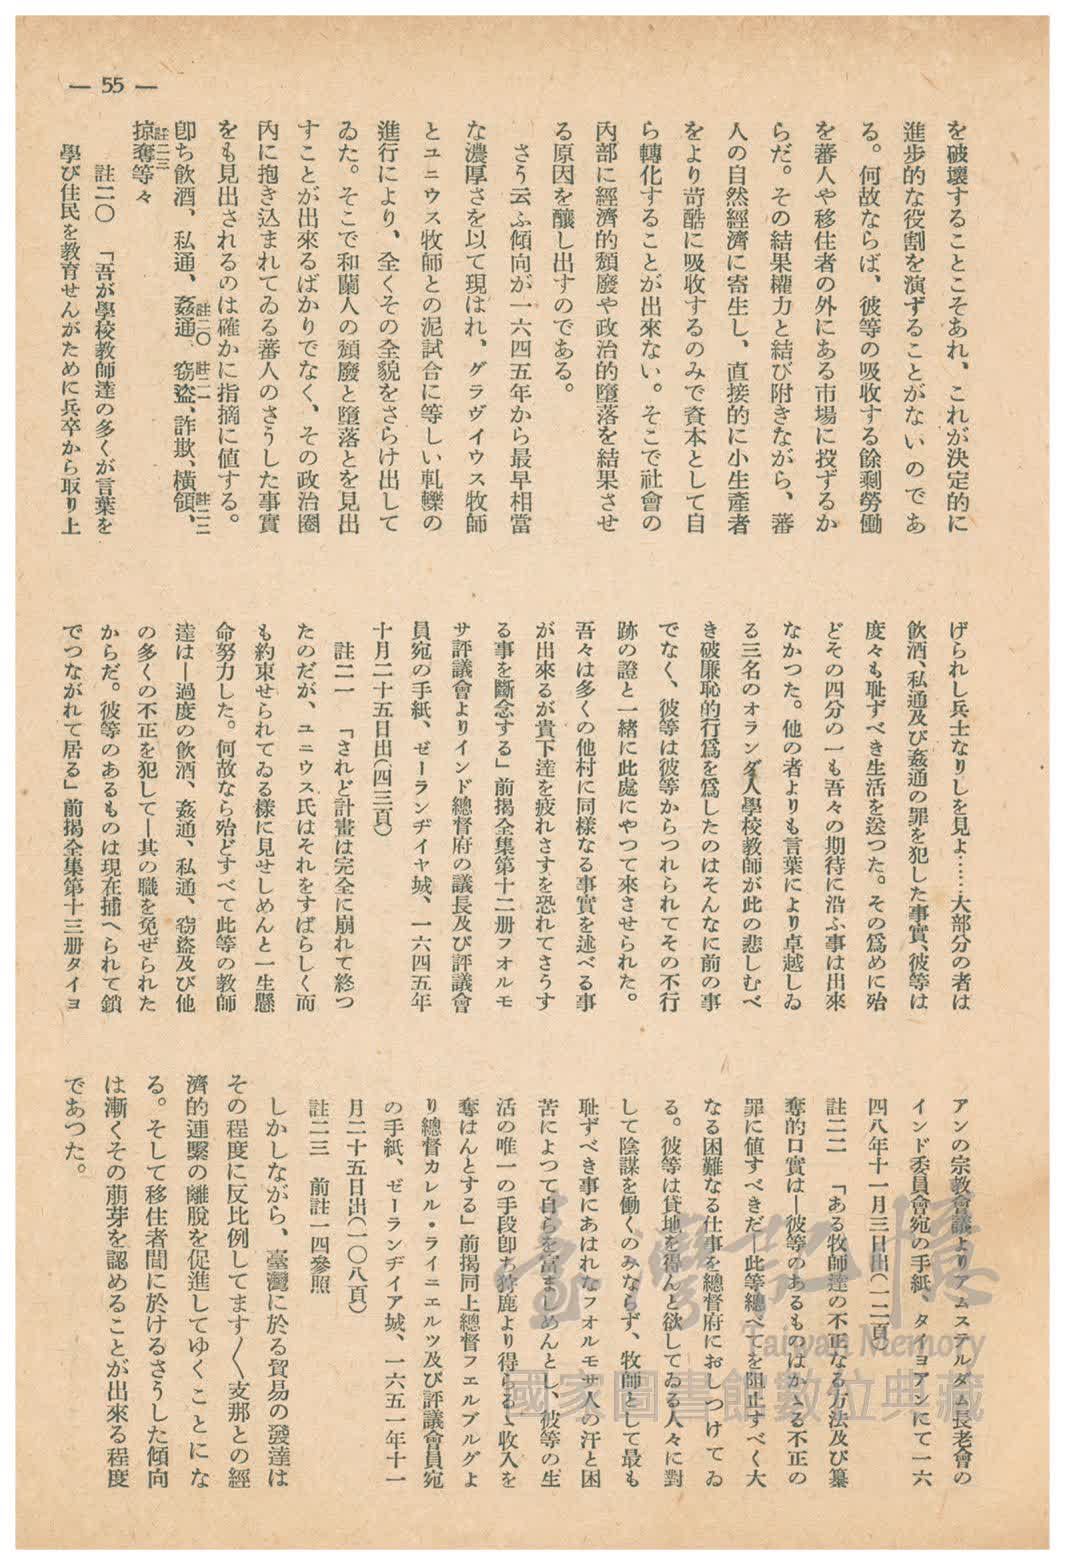 — 55 —
を破壞することこそあれ、これが決定的に
進步的な役割を演ずることがないのであ
る。何故ならば、彼等の吸收する餘剩勞働
を蕃人や移住者の外にある市場に投ずるか
らだ。その結果權力と結び附きながら、蕃
人の自然經濟に寄生し、直接的に小生產者
をより苛酷に吸收するのみで資本として自
ら轉化することが出來ない。そこで社會の
內部に經濟的頽廢や政治的墮落を結果させ
る原因を釀し出すのである。
さう云ふ傾向が一六四五年から最早相當
な濃厚さを以て現はれ、グラヴイウス牧師
とユニウス牧師との泥試合に等しい軋轢の
進行により、全くその全貌をさらけ出して
ゐた。そこで和蘭人の頽廢と墮落とを見出
すことが出來るばかりでなく、その政治圈
內に抱き込まれてゐる蕃人のさうした事實
をも見出されるのは確かに指摘に値する。
卽ち飮酒、私通、姦通、註二〇竊盜、註二一詐欺、橫領、註二二
掠奪等々註二三
註二〇 「吾が學校教師達の多くが言葉を
學び住民を教育せんがために兵卒から取り上
げられし兵士なりしを見よ……大部分の者は
飮酒、私通及び姦通の罪を犯した事實、彼等は
度々も耻ずべき生活を送つた。その爲めに殆
どその四分の一も吾々の期待に沿ふ事は出來
なかつた。他の者よりも言葉により卓越しゐ
る三名のオランダ人學校教師が此の悲しむべ
き破廉恥的行爲を爲したのはそんなに前の事
でなく、彼等は彼等からつれられてその不行
跡の證と一緖に此處にやつて來させられた。
吾々は多くの他村に同樣なる事實を述べる事
が出來るが貴下達を疲れさすを恐れてさうす
る事を斷念する」前揭全集第十二册フオルモ
サ評議會よりインド總督府の議長及び評議會
員宛の手紙、ゼーランヂイヤ城、一六四五年
十月二十五日出(四三頁)
註二一 「されど計畫は完全に崩れて終つ
たのだが、ユニウス氏はそれをすばらしく而
も約束せられてゐる樣に見せしめんと一生懸
命努力した。何故なら殆どすべて此等の教師
達は—過度の飮酒、姦通、私通、竊盜及び他
の多くの不正を犯して—其の職を免ぜられた
からだ。彼等のあるものは現在捕へられて鎖
でつながれて居る」前揭全集第十三册タイヨ
アンの宗教會議よりアムステルダム長老會の
インド委員會宛の手紙、タイヨアンにて一六
四八年十一月三日出(一二頁)
註二二 「ある牧師達の不正なる方法及び簒
奪的口實は—彼等のあるものはかゝる不正の
罪に値すべきだ—此等總べてを阻止すべく大
なる困難なる仕事を總督府におしつけてゐ
る。彼等は貸地を得んと欲してゐる人々に對
して陰謀を働くのみならず、牧師として最も
耻ずべき事にあはれなフオルモサ人の汗と困
苦によつて自らを富ましめんとし、彼等の生
活の唯一の手段卽ち狩鹿より得らるゝ收入を
奪はんとする」前揭同上總督フエルブルグよ
り總督カレル・ライニエルツ及び評議會員宛
の手紙、ゼーランヂイア城、一六五一年十一
月二十五日出(一〇八頁)
註二三 前註一四參照
しかしながら、臺灣に於る貿易の發達は
その程度に反比例してます〱支那との經
濟的連繫の離脫を促進してゆくことにな
る。そして移住者間に於けるさうした傾向
は漸くその萠芽を認めることが出來る程度
であつた。
臺灣記憶
Taiwan Memory
國家圖書館數位典藏